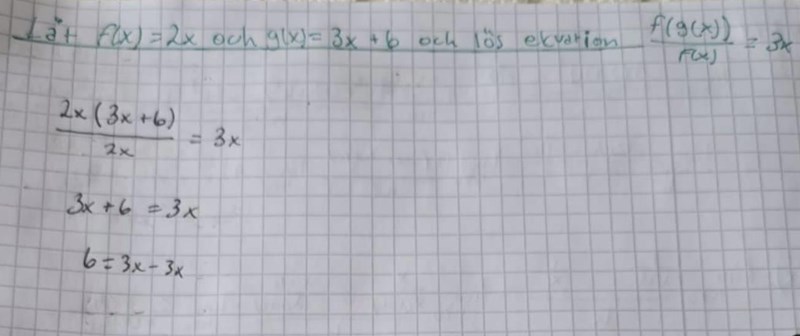 Låt f(x) = 2x och g(x) = 3x + 6 och lös ekvation f(g(x))/f(x) = 3x
2x(3x+6)/2x = 3x
3x + 6 = 3x
6 = 3x - 3x